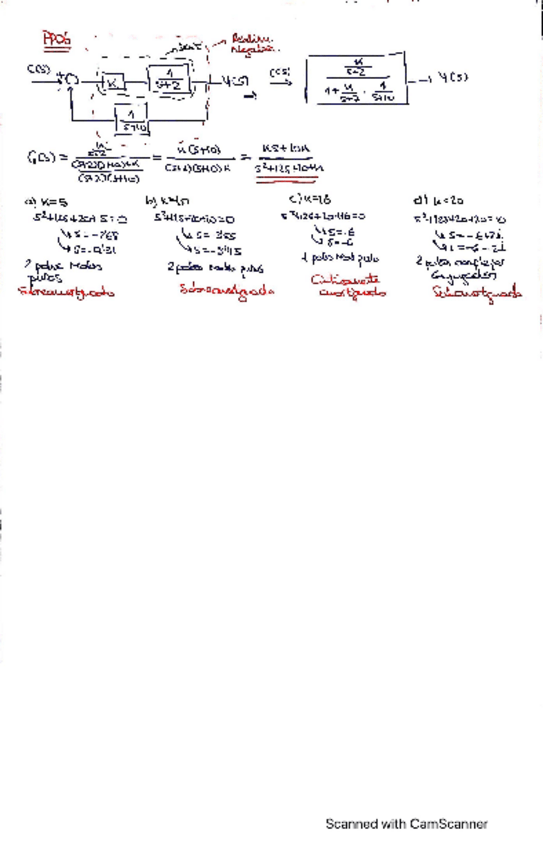 PP06
Serie
Realim. Negativa.
C(s) + K 1/(s+2) Y(s) → C(s) (K/(s+2))/(1+K/(s+2) · 1/(s+10)) → Y(s)
1/(s+10)
G(s) = (K/(s+2))/(((s+2)(s+10)+K)/((s+2)(s+10))) = K(s+10)/((s+2)(s+10)+K) = (Ks+10K)/(s²+12s+20+K)
a) K=5
s²+12s+20+5=0
s=-
s=-
2 polos reales
puros
Sobreamortiguado
b)
s²+12s+20+10=0
s=
s=-
2 polos reales puros
Sobreamortiguado
c) K=16
s²+12s+20+16=0
s=-6
s=-6
1 polos real puro
Críticamente
amortiguado
d) K=20
s²+12s+20+20=0
s=-6+2i
s=-6-2i
2 polos complejos
conjugados
Subamortiguado
Scanned with CamScanner